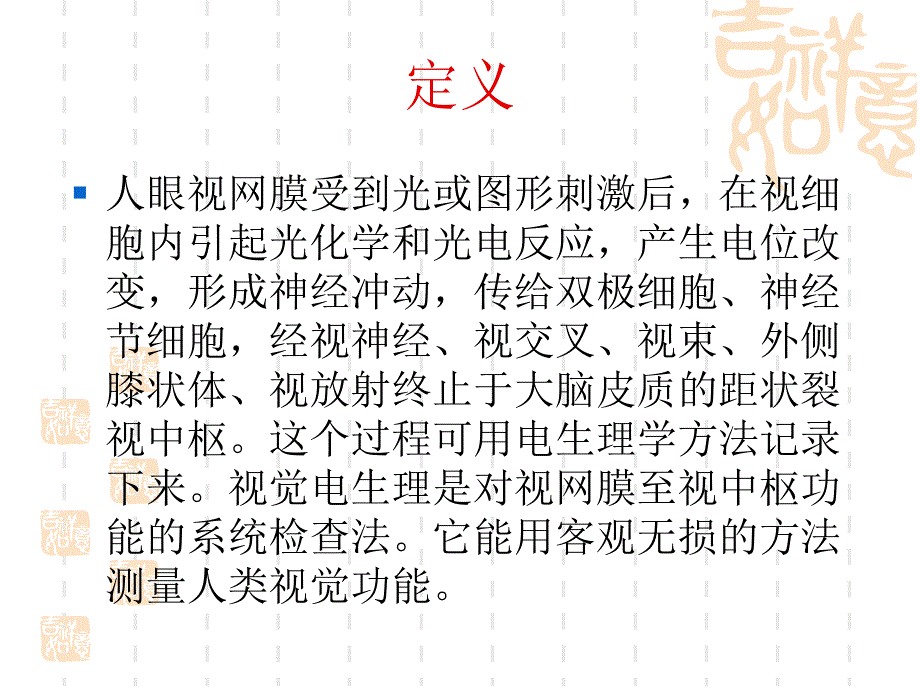 吉祥如意
定义
人眼视网膜受到光或图形刺激后，在视细
胞内引起光化学和光电反应，产生电位改
变，形成神经冲动，传给双极细胞、神经
节细胞，经视神经、视交叉、视束、外侧
膝状体、视放射终止于大脑皮质的距状裂
视中枢。这个过程可用电生理学方法记录
下来。视觉电生理是对视网膜至视中枢功
能的系统检查法。它能用客观无损的方法
测量人类视觉功能。
吉祥如意
吉祥如意
吉祥如意
吉祥如意
吉祥如意
吉祥如意